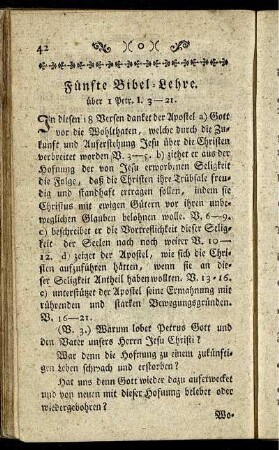 42 ( o )
Fünfte Bibel-Lehre.
über 1 Petr. I. 3—21.
In diesen 18 Versen danket der Apostel a) Gott
vor die Wohlthaten, welche durch die Zu-
kunft und Auferstehung Jesu über die Christen
verbreitet worden V. 3—5. b) ziehet er aus der
Hofnung der von Jesu erworbenen Seligkeit
die Folge, daß die Christen ihre Trübsale freu-
dig und standhaft ertragen sollen, indem sie
Christus mit ewigen Gütern vor ihren unbe-
weglichen Glauben belohnen wolle. V. 6—9.
c) beschreibet er die Vortreflichkeit dieser Selig-
keit der Seelen nach noch weiter V. 10—
12. d) zeiget der Apostel, wie sich die Chri-
sten aufzuführen hätten, wenn sie an die-
ser Seligkeit Antheil haben wollten. V. 13-16.
e) unterstützet der Apostel seine Ermahnung mit
rührenden und starken Bewegungsgründen.
V. 16—21.
(V. 3.) Warum lobet Petrus Gott und
den Vater unsers Herrn Jesu Christi?
War denn die Hofnung zu einem zukünfti-
gen Leben schwach und erstorben?
Hat uns denn Gott wieder dazu auferwecket
und von neuen mit dieser Hofnung belebet oder
wiedergebohren?
Wo-